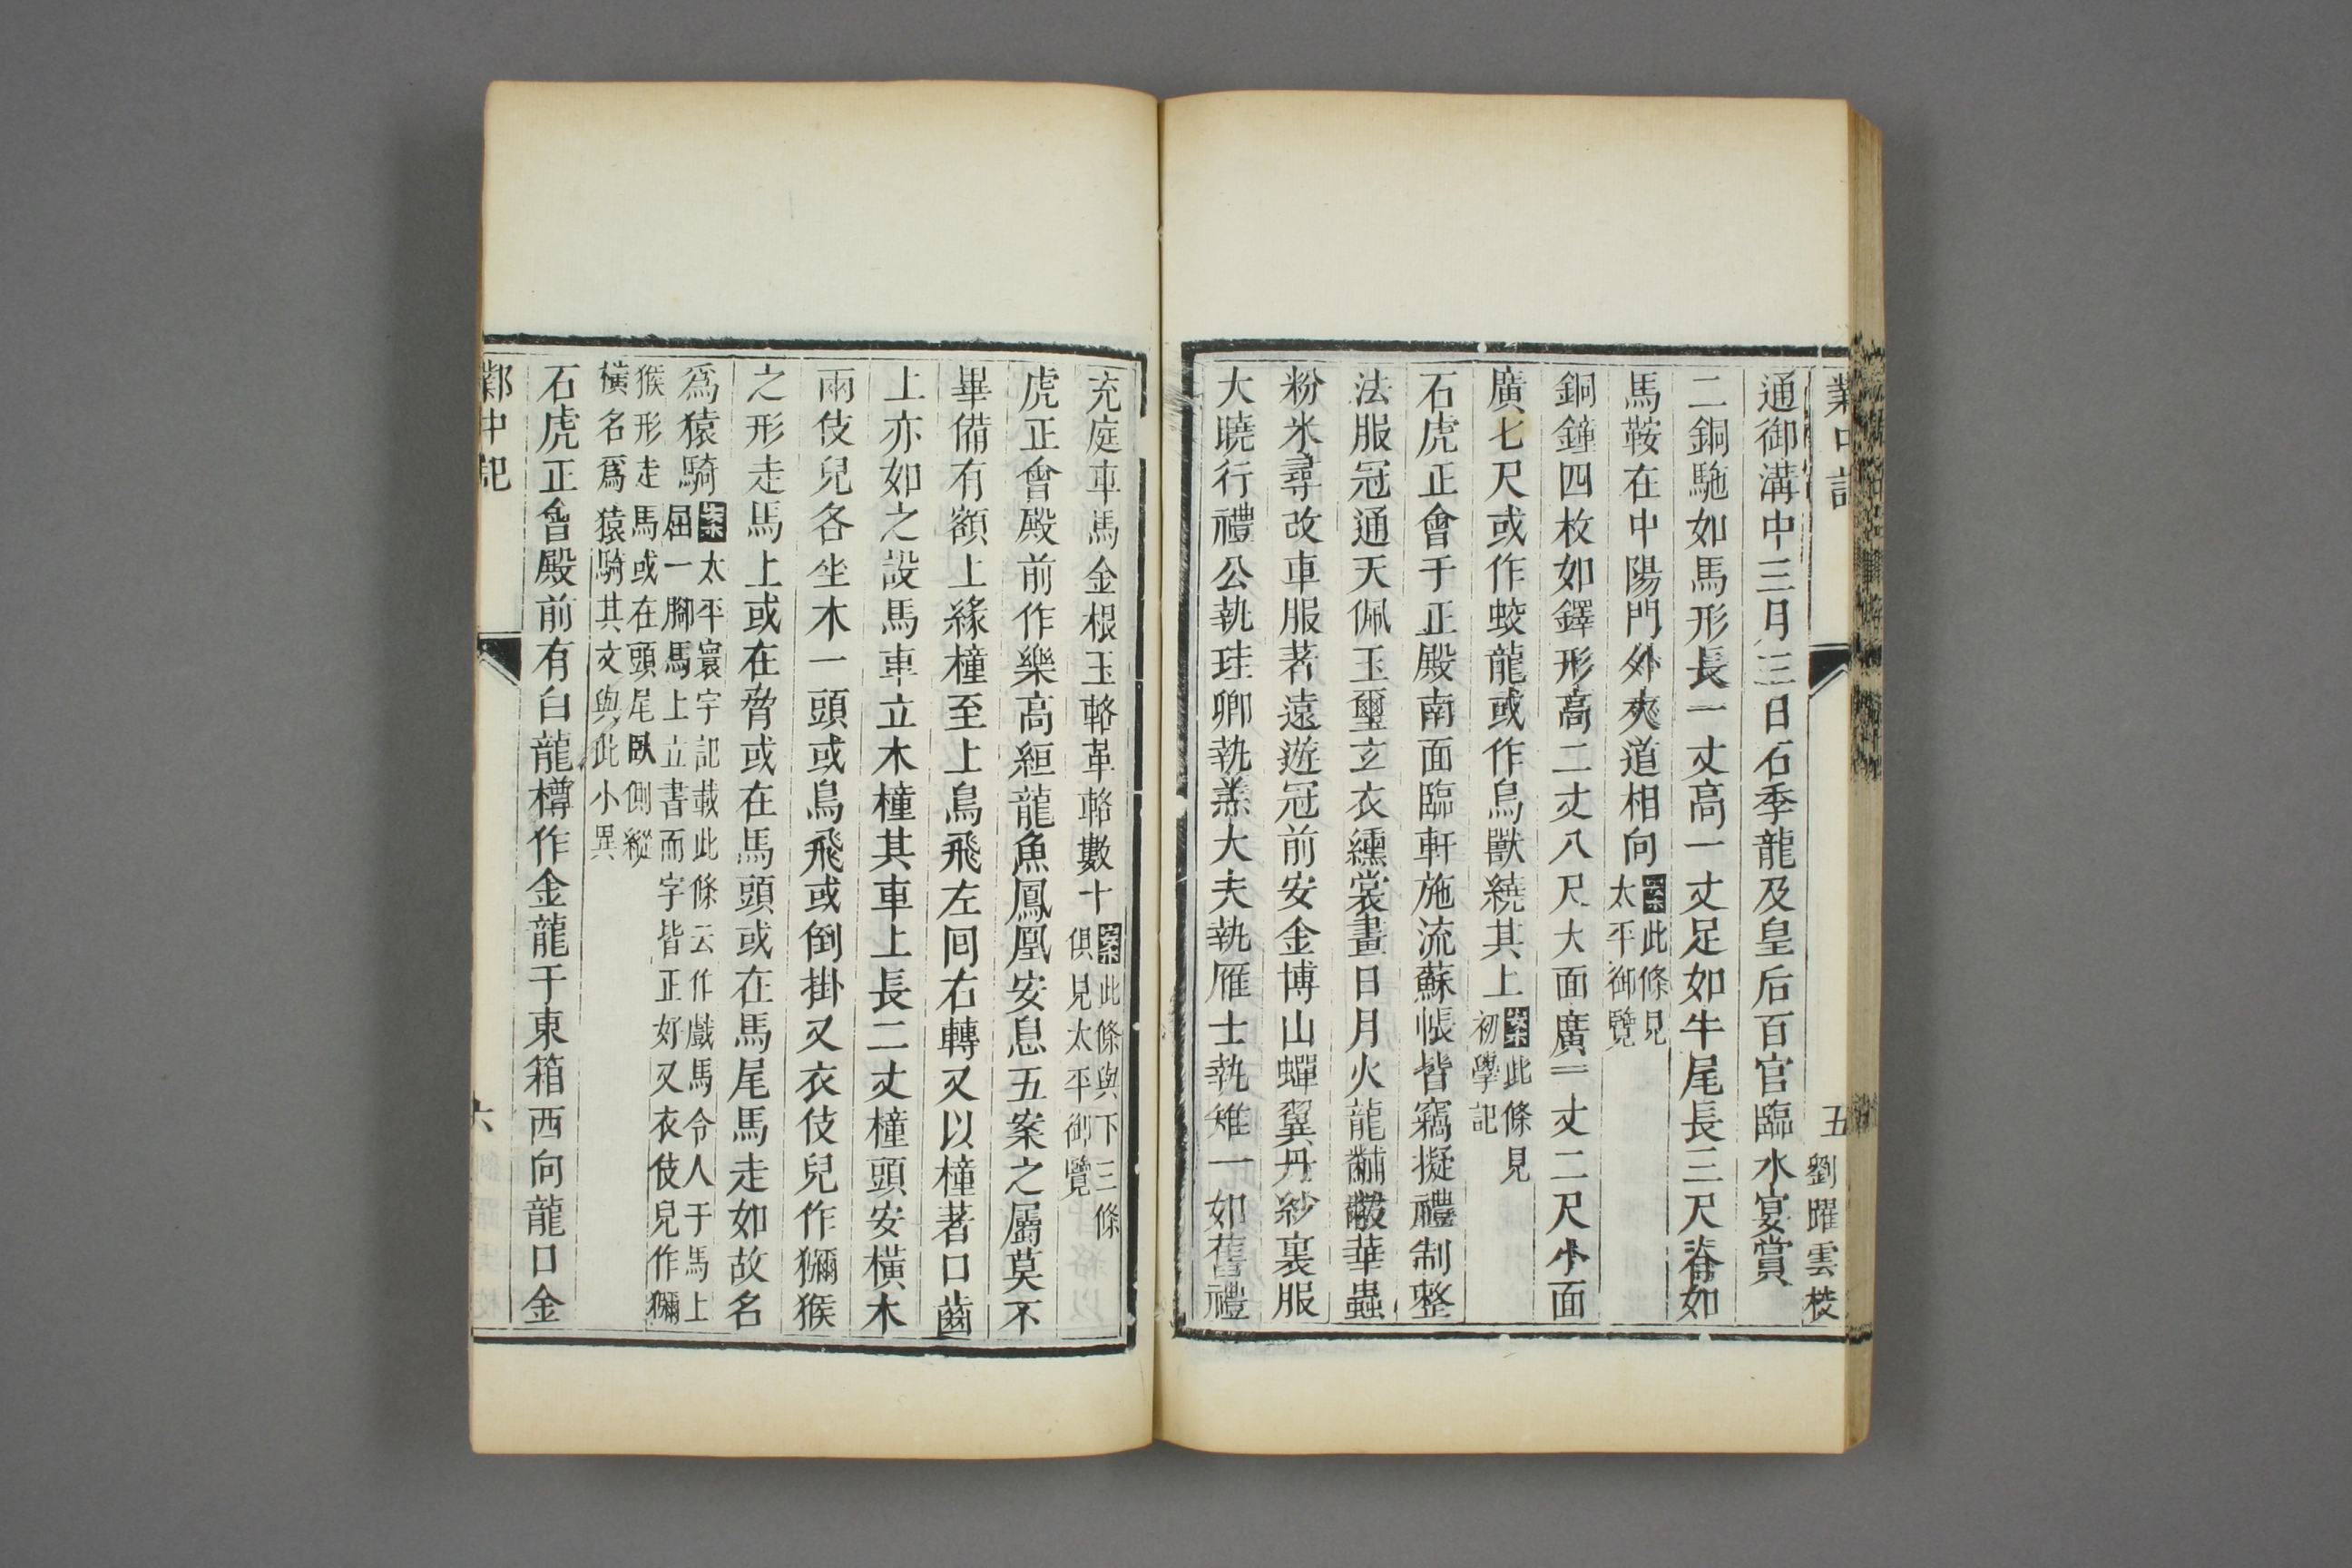 鄴中記
五
劉躍雲校
通御溝中三月三日石季龍及皇后百官臨水宴賞
二銅駞如馬形長一丈高一丈足如牛尾長三尺脊如
馬鞍在中陽門外夾道相向案此條見
太平御覽
銅鐘四枚如鐸形高二丈八尺大面廣一丈二尺小面
廣七尺或作蛟龍或作鳥獸繞其上案此條見
初學記
石虎正會于正殿南面臨軒施流蘇帳皆竊擬禮制整
法服冠通天佩玉璽玄衣纁裳畫日月火龍黼黻華蟲
粉米尋改車服著遠遊冠前安金博山蟬翼丹紗裏服
大曉行禮公執珪卿執羔大夫執雁士執雉一如舊禮
充庭車馬金根玉輅革輅數十案此條與下三條
俱見太平御覽
虎正會殿前作樂高絙龍魚鳳凰安息五案之屬莫不
畢備有額上緣橦至上鳥飛左回右轉又以橦著口齒
上亦如之設馬車立木橦其車上長二丈橦頭安橫木
兩伎兒各坐木一頭或鳥飛或倒掛又衣伎兒作獼猴
之形走馬上或在脅或在馬頭或在馬尾馬走如故名
爲猿騎案太平寰宇記載此條云作戲馬令人于馬上
屈一腳馬上立書而字皆正好又衣伎兒作獼
猴形走馬或在頭尾臥側縱
橫名爲猿騎其文與此小異
石虎正會殿前有白龍樽作金龍于東箱西向龍口金
鄴中記
六